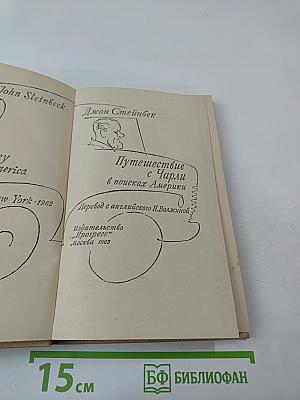 John Steinbeck
merica
New York · 1962
Джон Стейнбек
Путешествие
с Чарли
в поисках Америки
Перевод с английского Н. Волжиной
Издательство
„Прогресс“
Москва 1965
15 см
БФ БИБЛИОФАН